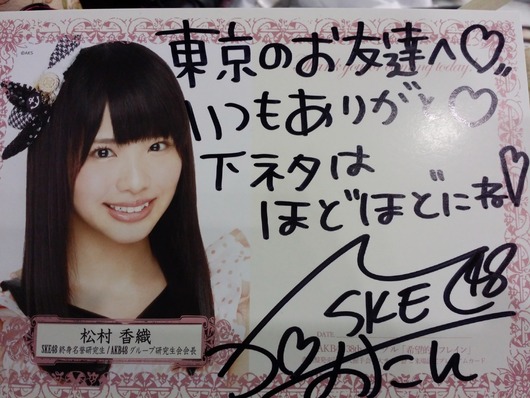 ©AKS
東京のお友達へ♡
いつもありがと♡
下ネタは
ほどほどにね♡
SKE48
かおたん
松村 香織
SKE48 終身名誉研究生 / AKB48 グループ研究生会会長
DATE
「希望的リフレイン」